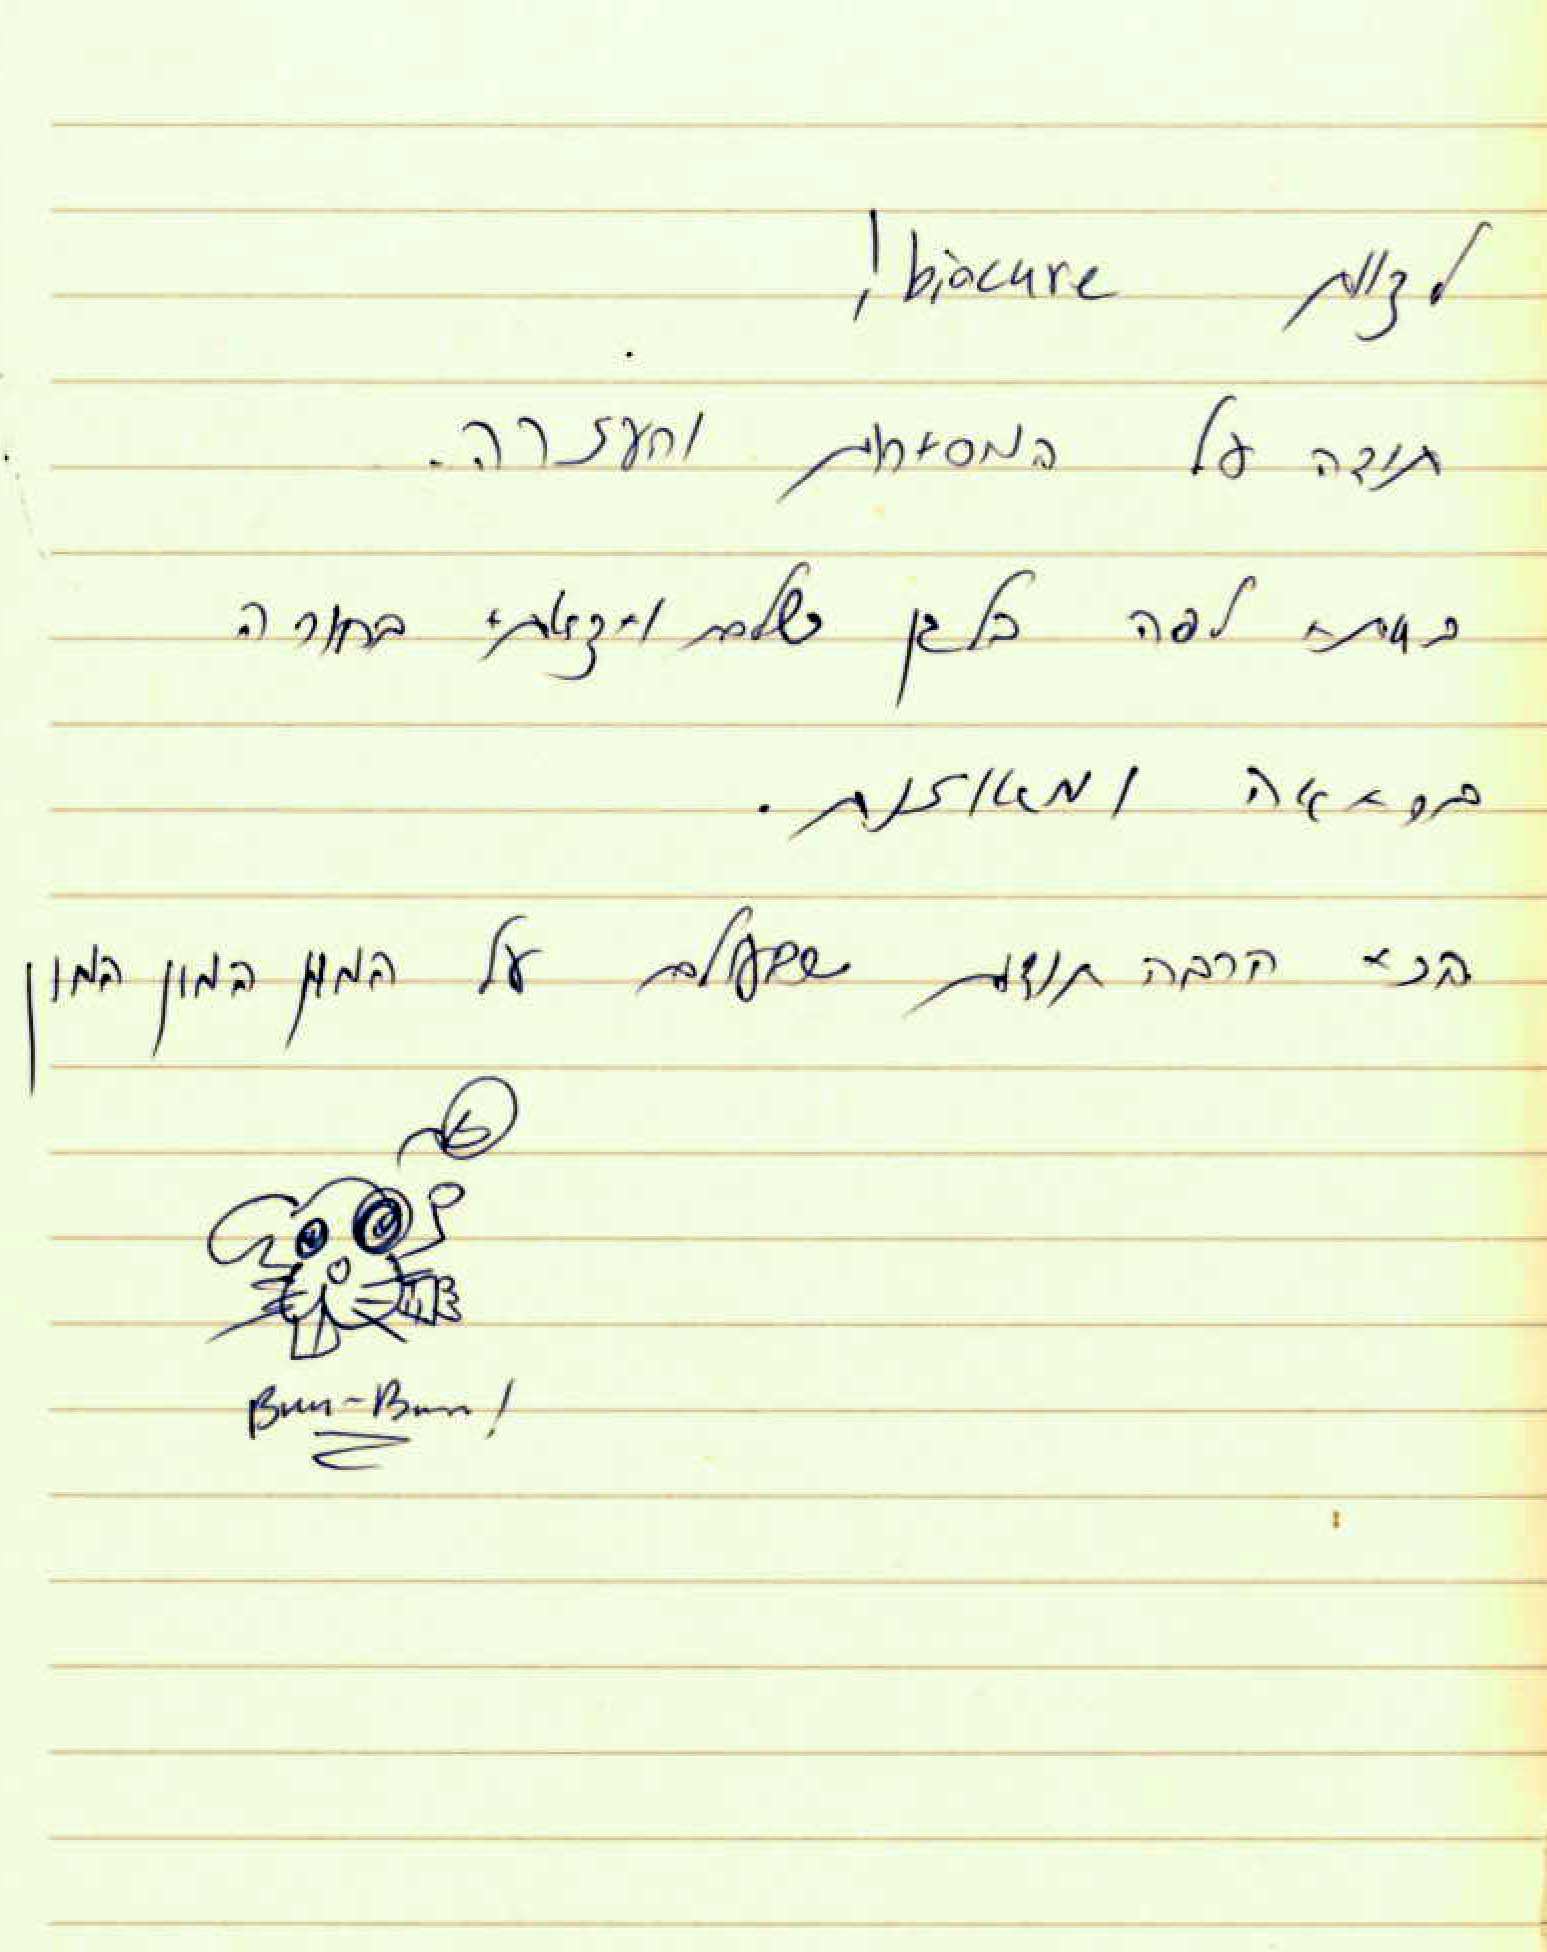 לצוות biocure!
תודה על המסירות והעזרה.
באתי לפה בלגן שלם ויצאתי בחורה
בריאה ומאוזנת.
הכי הרבה תודות שבעולם על המון המון המון
Bun-Bun!